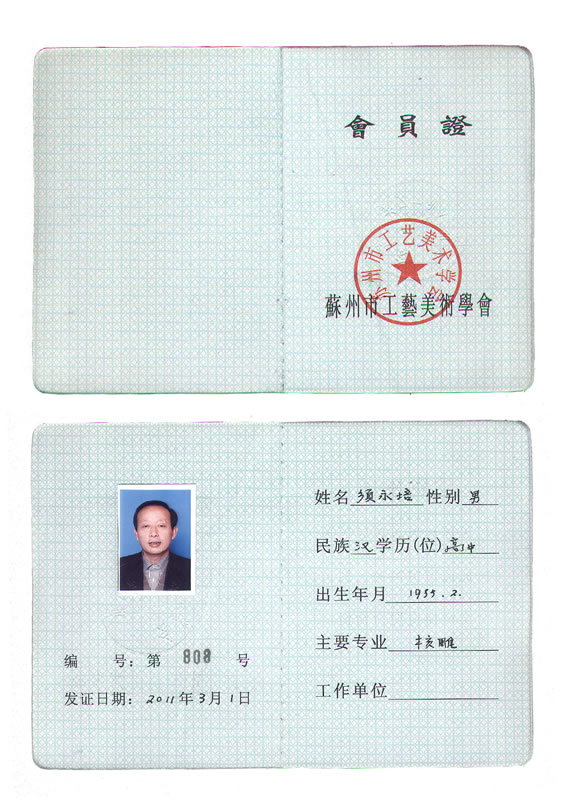 會員證
苏州市工艺美术学会
蘇州市工藝美術學會
姓名 须永培 性别 男
民族 汉 学历(位) 高中
出生年月 1955.2.
主要专业 核雕
工作单位
编 号：第 808 号
发证日期：2011年3月1日